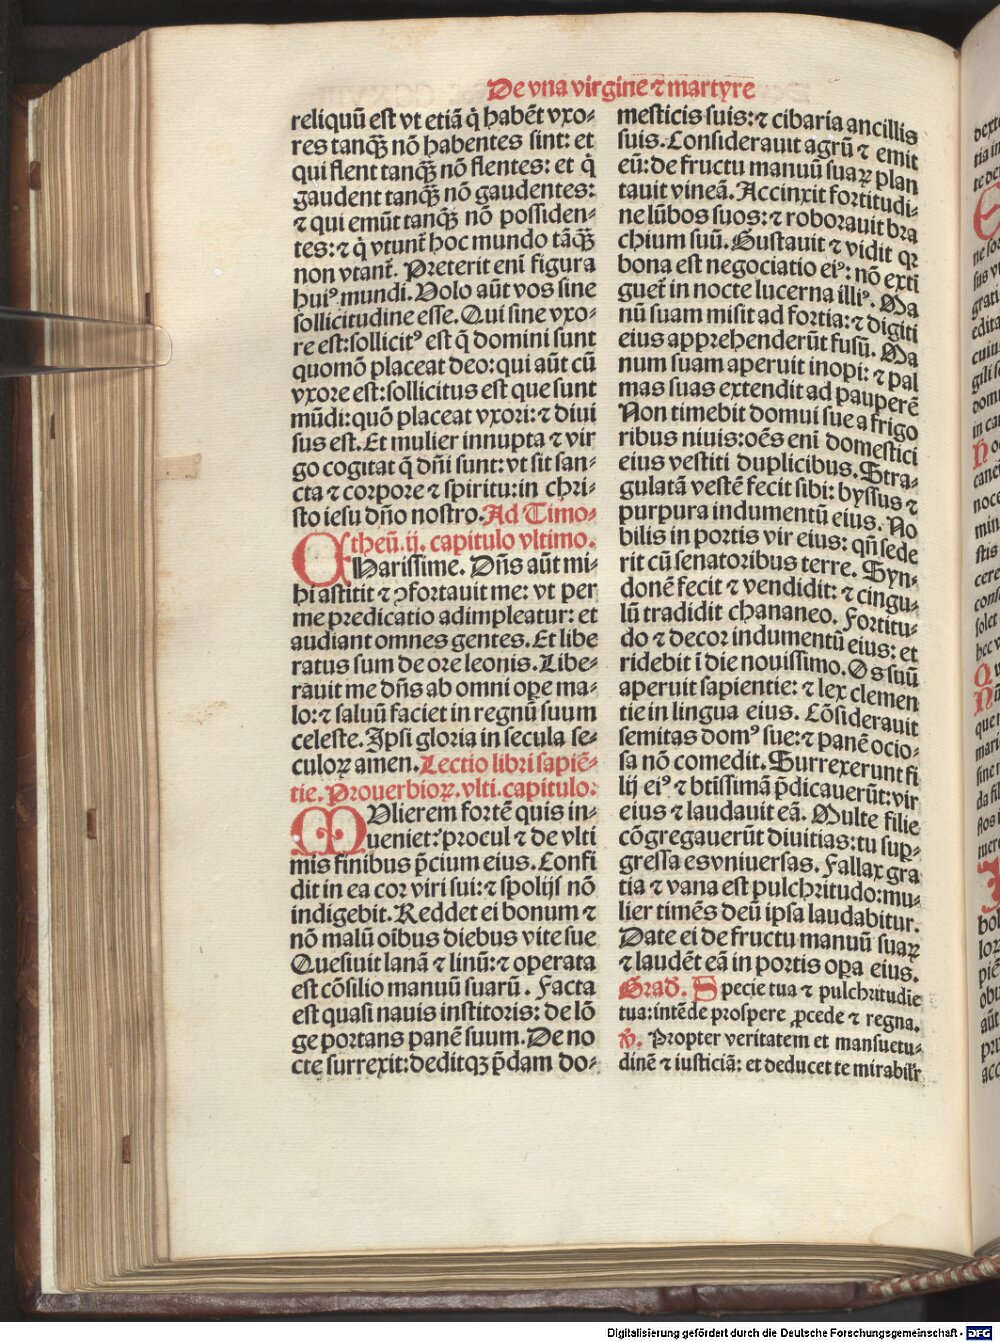 De vna virgine ⁊ martyre
reliquū est vt etiā q̇ habēt vxo⸗
res tanqꝫ̄ nō habentes sint: et
qui flent tanqꝫ̄ nō flentes: et q̇
gaudent tanqꝫ̄ nō gaudentes:
⁊ qui emūt tanqꝫ̄ nō possiden⸗
tes: ⁊ q̇ vtunt̄ hoc mundo tāqꝫ̄
non vtant̄. Preterit eni figura
huiꝰ mundi. Volo aūt vos sine
sollicitudine esse. Qui sine vxo⸗
re est: sollicitꝰ est q̄ domini sunt
quomō placeat deo: qui aūt cū
vxore est: sollicitus est que sunt
mūdi: quō placeat vxori: ⁊ diui
sus est. Et mulier innupta ⁊ vir
go cogitat q̄ dn̄i sunt: vt sit san⸗
cta ⁊ corpore ⁊ spiritu: in chri⸗
sto iesu dn̄o nostro. Ad Timo⸗
theū. ij. capitulo vltimo.
CHarissime. Dn̄s aūt mi⸗
hi astitit ⁊ ꝯfortauit me: vt per
me predicatio adimpleatur: et
audiant omnes gentes. Et libe
ratus sum de ore leonis. Libe⸗
rauit me dn̄s ab omni ope̱ ma⸗
lo: ⁊ saluū faciet in regnū suum
celeste. Ipsi gloria in secula se⸗
culoꝝ amen. Lectio libri sapiē⸗
tie. Prouerbioꝝ. vlti. capitulo:
MVlierem fortē quis in⸗
ueniet: procul ⁊ de vlti
mis finibus p̄cium eius. Confi
dit in ea cor viri sui: ⁊ spolijs nō
indigebit. Reddet ei bonum ⁊
nō malū oībus diebus vite sue
Quesiuit lanā ⁊ linū: ⁊ operata
est cōsilio manuū suarū. Facta
est quasi nauis institoris: de lō
ge portans panē suum. De no
cte surrexit: deditqꝫ p̄dam do⸗
mesticis suis: ⁊ cibaria ancillis
suis. Considerauit agrū ⁊ emit
eū: de fructu manuū suaꝝ plan
tauit vineā. Accinxit fortitudi⸗
ne lūbos suos: ⁊ roborauit bra
chium suū. Gustauit ⁊ vidit qꝛ
bona est negociatio eiꝰ: nō exti
guet̄ in nocte lucerna illiꝰ. Ma
nū suam misit ad fortia: ⁊ digiti
eius apprehenderūt fusū. Ma
num suam aperuit inopi: ⁊ pal
mas suas extendit ad pauperē
Non timebit domui sue a frigo
ribus niuis: oēs eni domestici
eius vestiti duplicibus. Stra⸗
gulatā vestē fecit sibi: byssus ⁊
purpura indumentū eius. No
bilis in portis vir eius: qn̄ sede
rit cū senatoribus terre. Syn⸗
donē fecit ⁊ vendidit: ⁊ cingu⸗
lū tradidit chananeo. Fortitu⸗
do ⁊ decor indumentū eius: et
ridebit ī die nouissimo. Os suū
aperuit sapientie: ⁊ lex clemen
tie in lingua eius. Cōsiderauit
semitas domꝰ sue: ⁊ panē ocio⸗
sa nō comedit. Surrexerunt fi
lij eiꝰ ⁊ bt̄issimā p̄dicauerūt: vir
eius ⁊ laudauit eā. Multe filie
cōgregauerūt diuitias: tu sup̱⸗
gressa es vniuersas. Fallax gra
tia ⁊ vana est pulchritudo: mu⸗
lier timēs deū ipsa laudabitur.
Date ei de fructu manuū suaꝝ
⁊ laudēt eā in portis opa̱ eius.
Grad̄. Specie tua ⁊ pulchritudie
tua: intēde prospere ꝓcede ⁊ regna.
℣. Propter veritatem et mansuetu⸗
dinē ⁊ iusticiā: et deducet te mirabilr̄
Digitalisierung gefördert durch die Deutsche Forschungsgemeinschaft - DFG